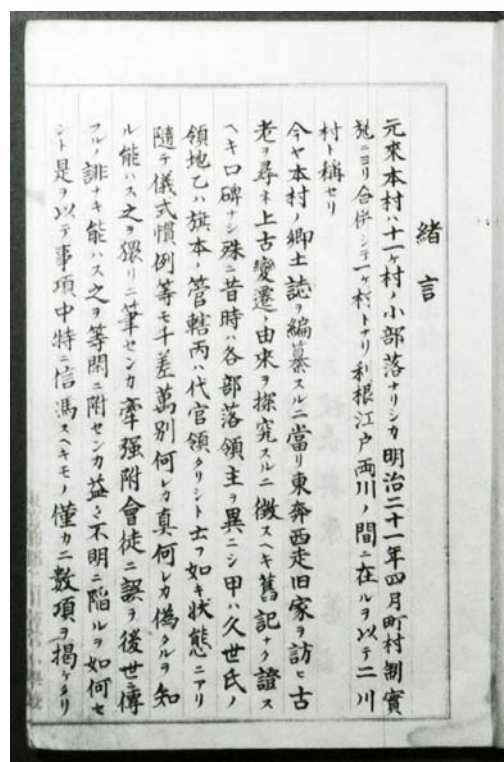 緒言
元來本村ハ十一ヶ村ノ小部落ナリシカ明治二十一年四月町村制實
施ニヨリ合併シテ一ヶ村トナリ利根江戸両川ノ間ニ在ルヲ以テ二川
村ト稱セリ
今ヤ本村ノ郷土誌ヲ編纂スルニ當リ東奔西走旧家ヲ訪ヒ古
老ヲ尋ネ上古変遷ノ由來ヲ探究スルニ徴スヘキ舊記ナク證ス
ヘキ口碑ナシ殊ニ昔時ハ各部落領主ヲ異ニシ甲ハ久世氏ノ
領地乙ハ旗本ノ管轄丙ハ代官領タリシト士フ如キ状態ニアリ
随テ儀式慣例等モ千差萬別何レカ真何レカ偽タルヲ知
ル能ハス之ヲ猥リニ筆センカ牽强附會徒ニ誤ヲ後世傳
フルノ誹ナキ能ハス之ヲ等閑ニ附センカ益々不明ニ陥ルヲ如何セ
ント是ヲ以テ事項中特ニ信馮スヘキモノ僅カニ數項ヲ揚ケタリ